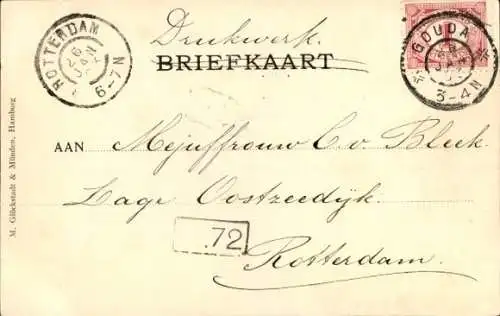 Drukwerk.
BRIEFKAART
ROTTERDAM
26
JAN
6-7N
GOUDA
JAN
3-4N
AAN Mejuffrouw C. v. Bleek.
Lage Oostzeedijk.
72
Rotterdam.
M. Glückstadt & Münden, Hamburg